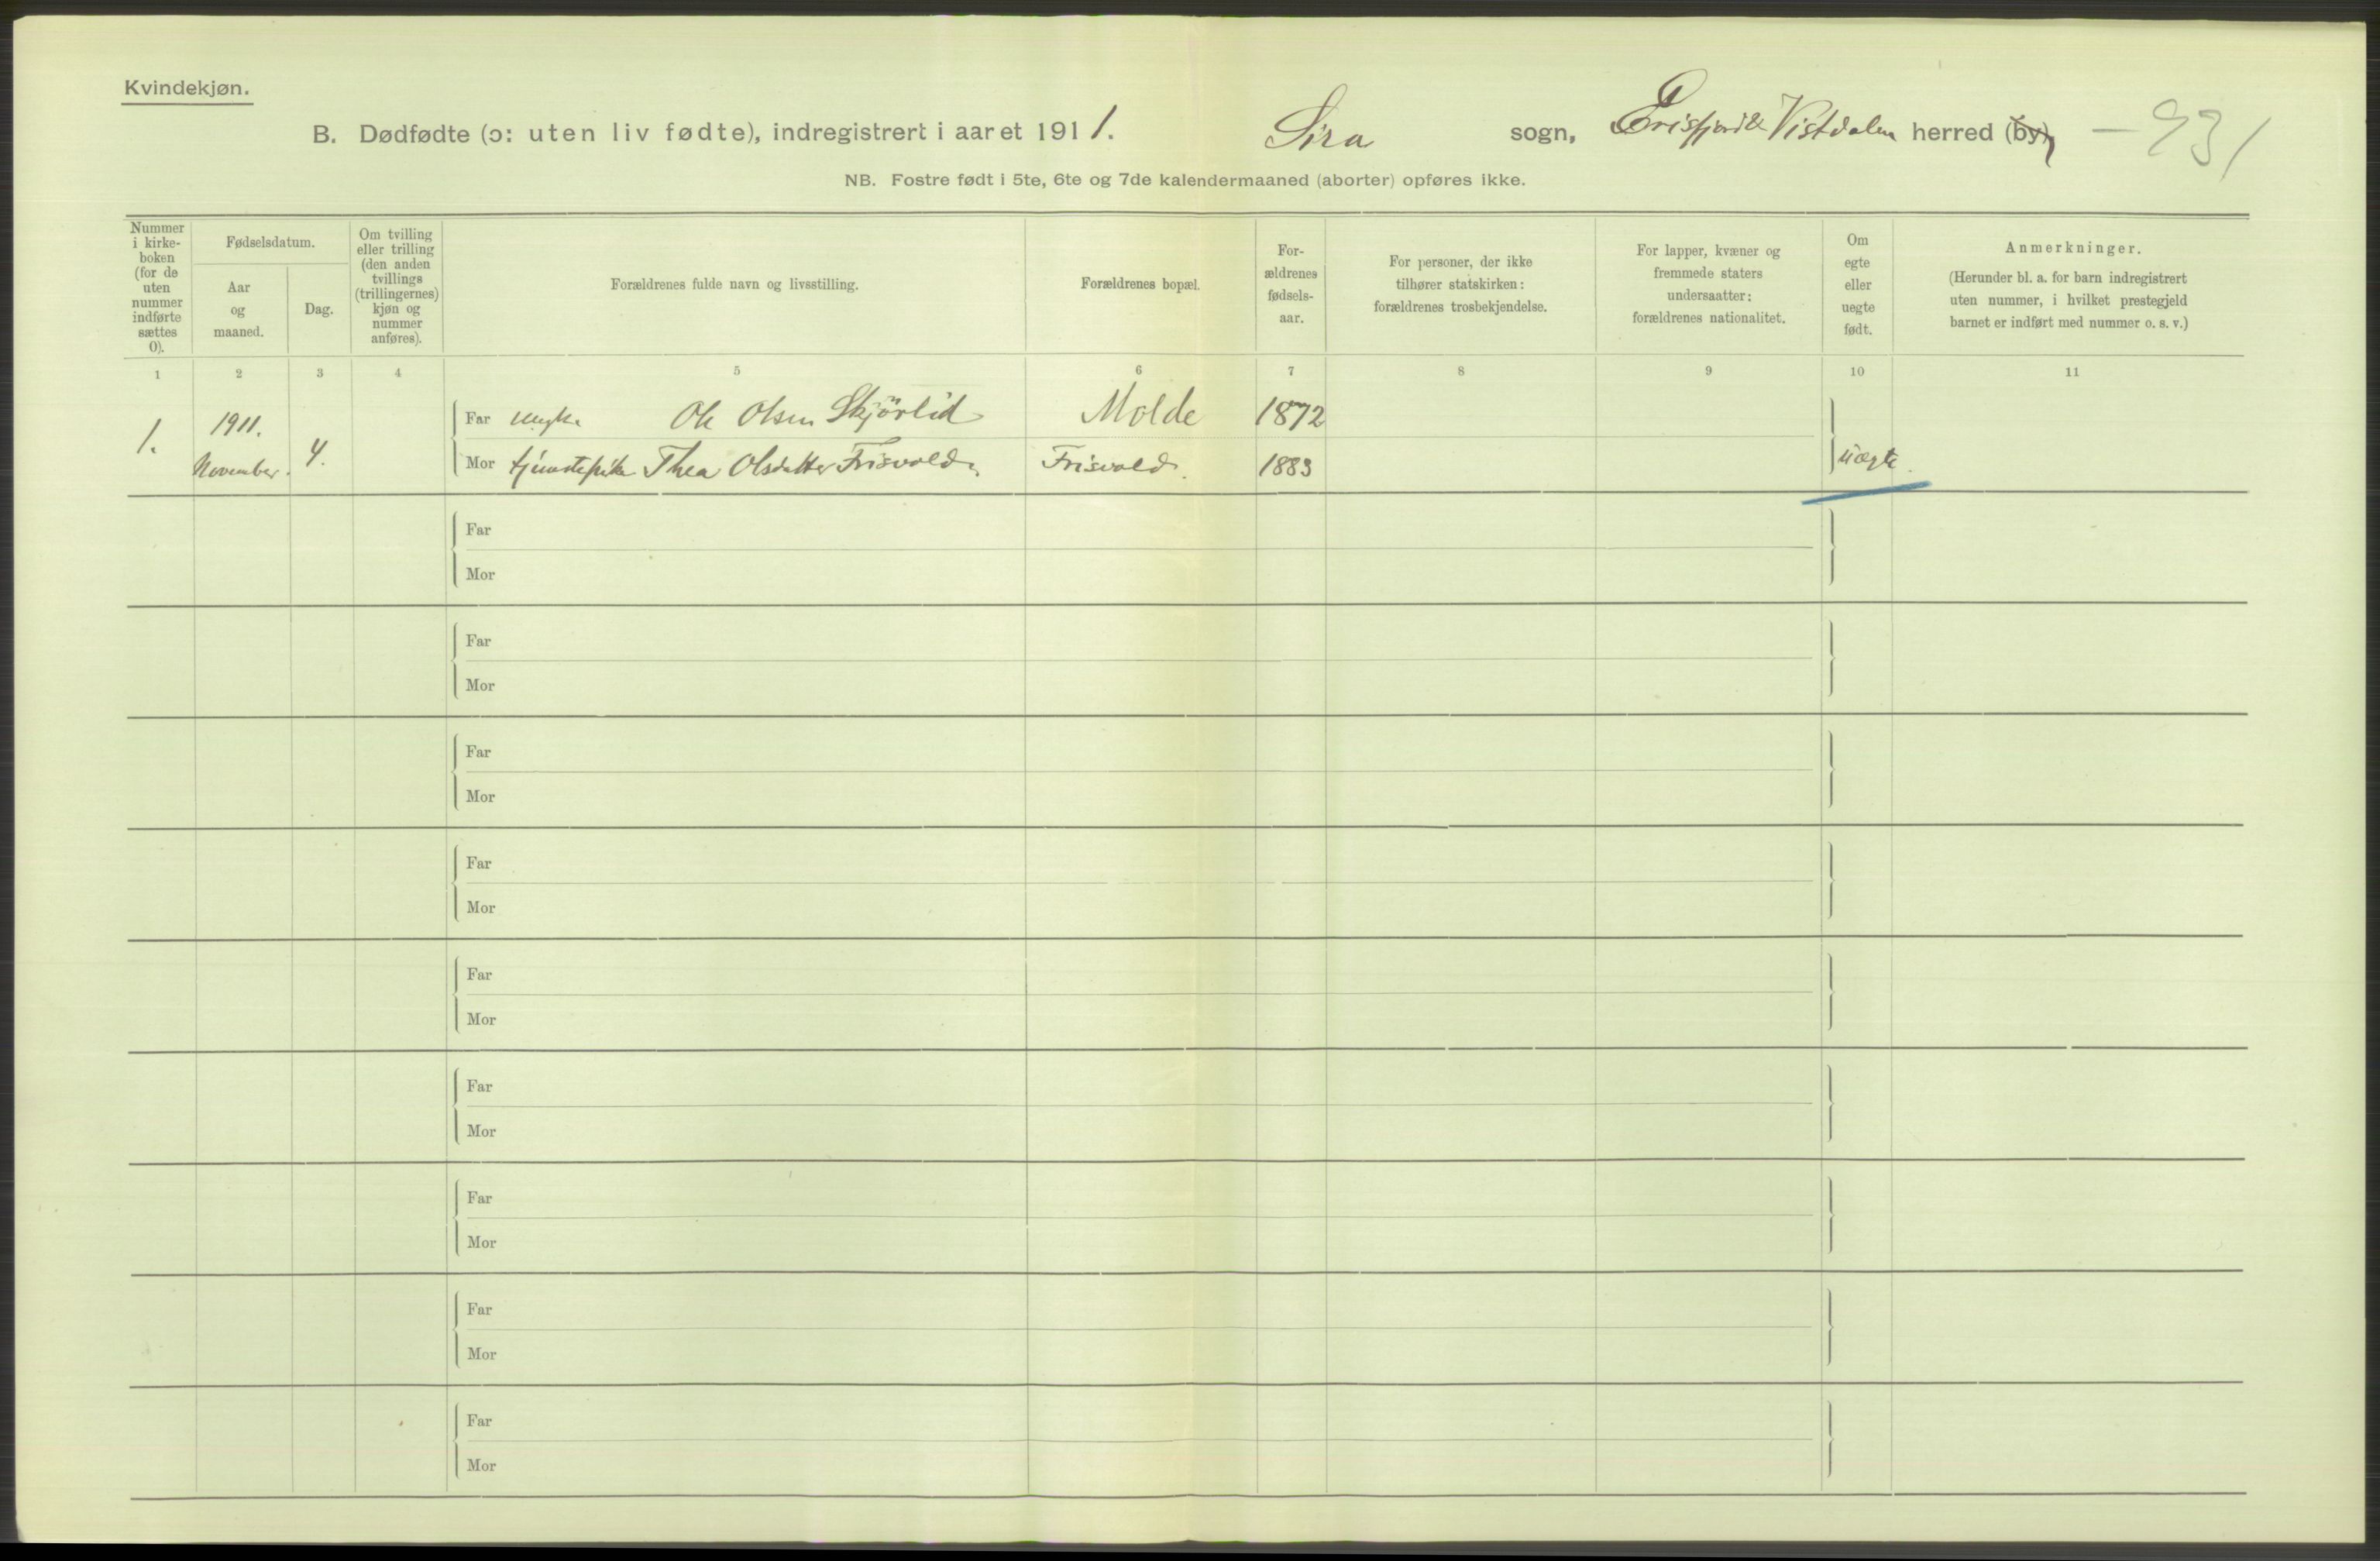 Kvindekjøn.
B. Dødfødte (ɔ: uten liv fødte), indregistrert i aaret 1911. Sira sogn, Erisfjord & Vistdalen herred (by) — 931
NB. Fostre født i 5te, 6te og 7de kalendermaaned (aborter) opføres ikke.
Nummer i kirke-boken (for de uten nummer indførte sættes 0).
Fødselsdatum.
Aar og maaned.
Dag.
Om tvilling eller trilling (den anden tvillings (trillingernes) kjøn og nummer anføres).
Forældrenes fulde navn og livsstilling.
Forældrenes bopæl.
For-ældrenes fødsels-aar.
For personer, der ikke tilhører statskirken: forældrenes trosbekjendelse.
For lapper, kvæner og fremmede staters undersaatter: forældrenes nationalitet.
Om egte eller uegte født.
Anmerkninger.
(Herunder bl. a. for barn indregistrert uten nummer, i hvilket prestegjeld barnet er indført med nummer o. s. v.)
1 2 3 4 5 6 7 8 9 10 11
1. 1911. November. 4.
Far Ole Olsen Skjörlid Molde 1872
Mor tjenestepike Thea Olsdatter Frisvold. Frisvold. 1883 uægte.
Far
Mor
Far
Mor
Far
Mor
Far
Mor
Far
Mor
Far
Mor
Far
Mor
Far
Mor
Far
Mor